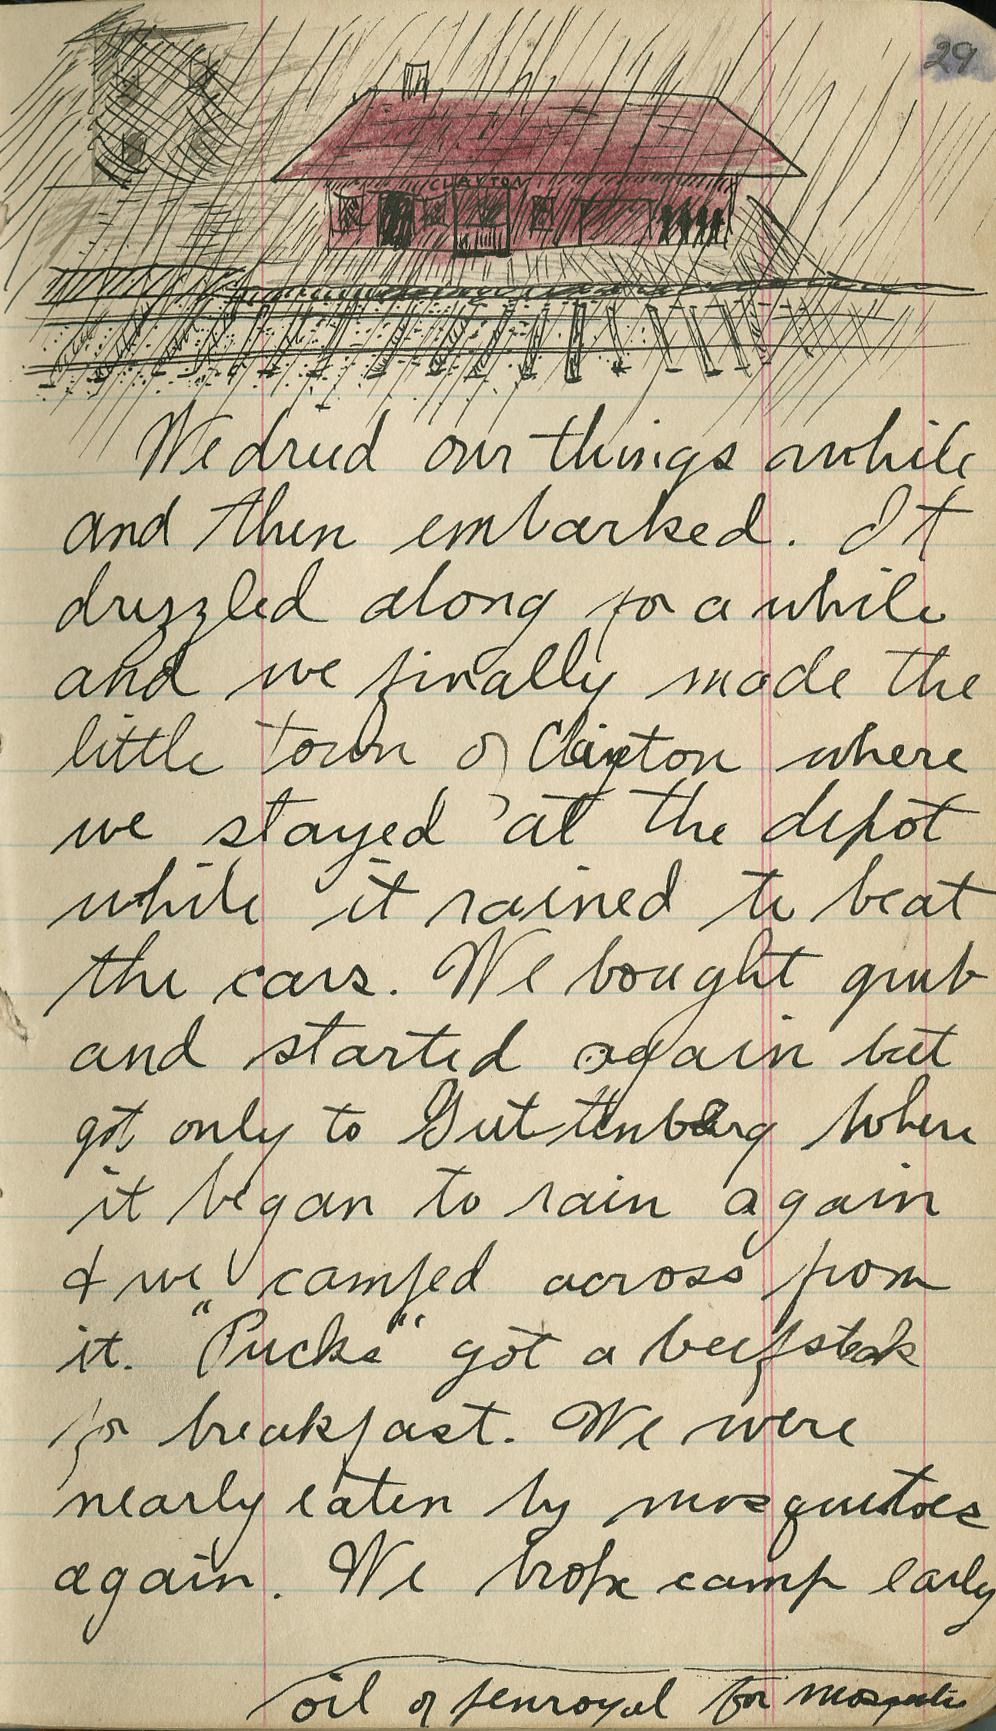 29
CLAYTON
We dried our things awhile
and then embarked. It
drizzled along for a while
and we finally made the
little town of Clayton where
we stayed at the depot
while it rained to beat
the cars. We bought grub
and started again but
got only to Guttenberg where
it began to rain again
& we camped across from
it. "Pucks" got a beefsteak
for breakfast. We were
nearly eaten by mosquitoes
again. We broke camp early
oil of penroyal for mosquito